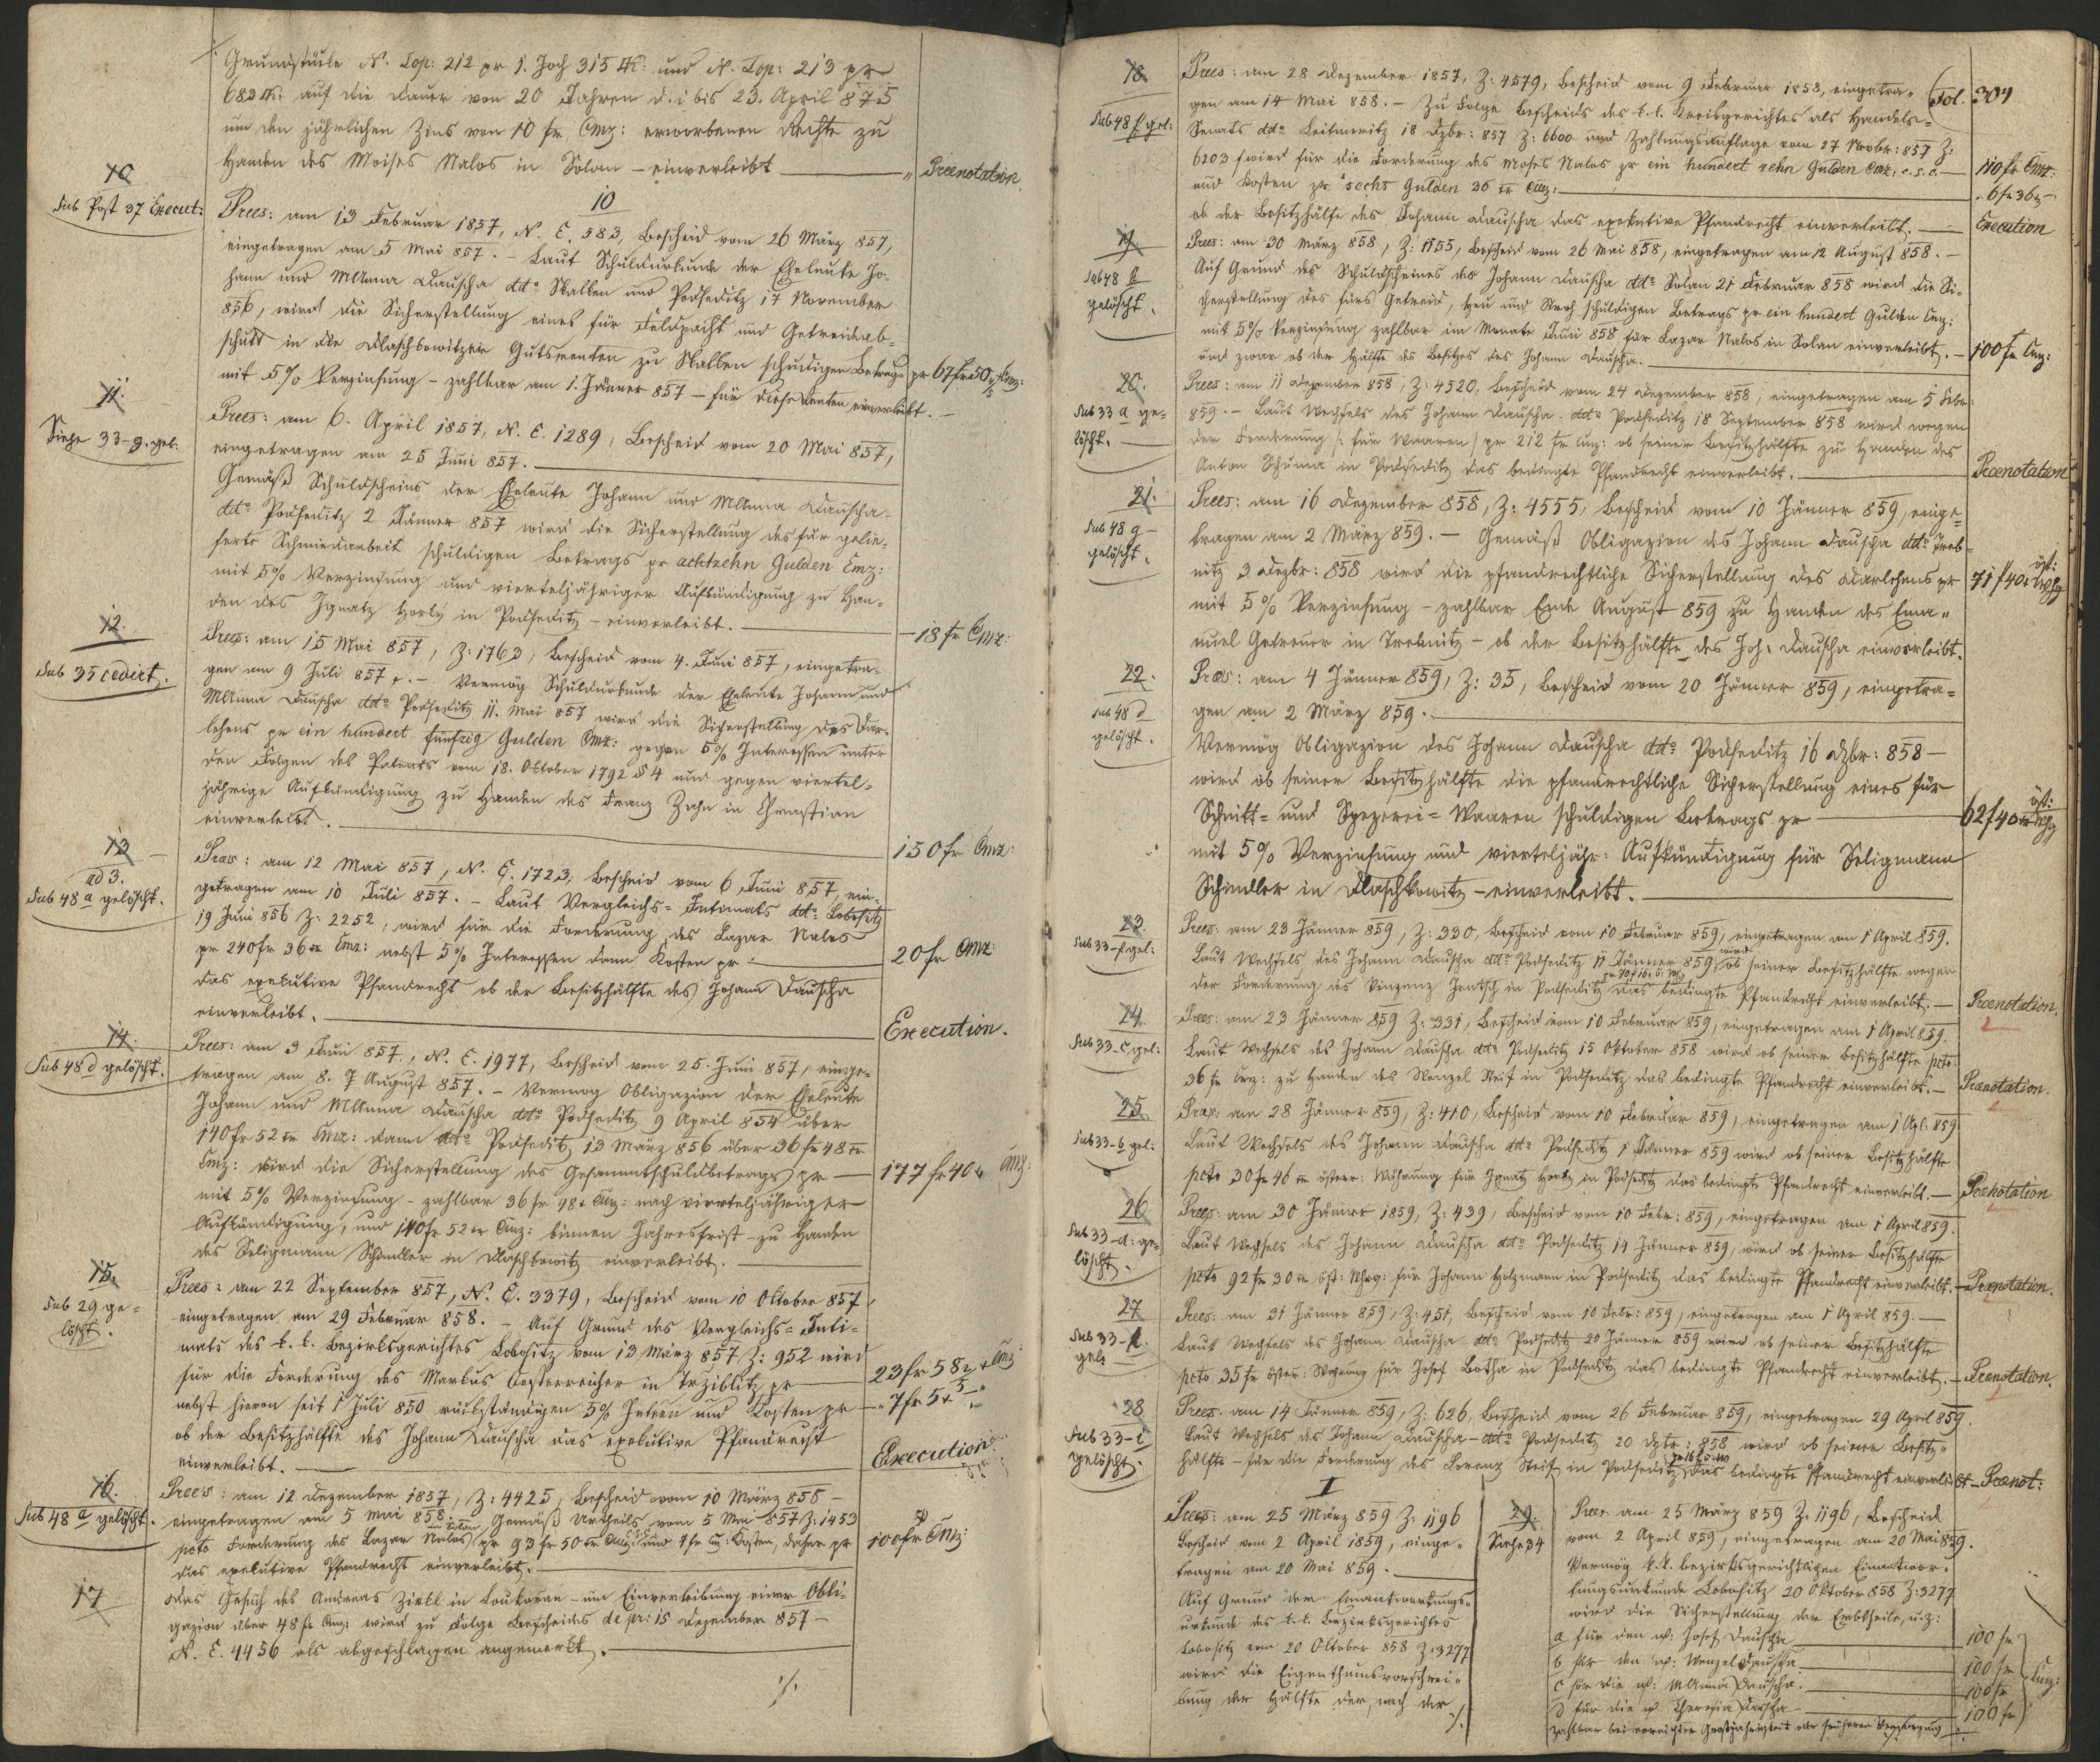 Grundstücke N. Top: 212 pr 1. Joch 315 □Kl: und N. Top: 213 pr
683 □Kl: auf die Dauer von 20 Jahren d. i bis 23. April 875
um den jährlichen Zins von 10 fr Cmz: erworbenen Rechte zu
Handen des Moises Nalos in Solan – einverleibt " Prænotation
10
Sub Post 37 Execut:
10
Præs: am 13 Februar 1857, N. E. 583, Bescheid vom 26 März 857,
eingetragen am 5 Mai 857. – Laut Schuldurkunde der Eheleute Jo-
hann und MAnna Dauscha ddto Skalken und Podseditz 17 November
856, wird die Sicherstellung eines für Feldpacht und Getreideab-
schütt in die Dlaschkowitzer Gutsrenten zu Skalken schuldigen Betrags pr 67 fr 50 Cmz:
mit 5% Verzinsung – zahlbar am 1. Jänner 857 – für diese Renten einverleibt. –
11.
Siehe 33-g. gel.
Præs: am 6. April 1857, N. E. 1289, Bescheid vom 20 Mai 857,
eingetragen am 25 Juni 857.
Gemäß Schuldscheins der Eheleute Johann und MAnna Dauscha
ddto Podseditz 2 Jänner 857 wird die Sicherstellung des für gelie-
ferte Schmiedarbeit schuldigen Betrags pr achtzehn Gulden Cmz:
mit 5% Verzinsung und vierteljähriger Aufkündigung zu Han-
den des Ignatz Horky in Podseditz – einverleibt. – 18 fr Cmz:
12.
Sub 35 cedirt.
Præs: am 15 Mai 857, Z: 1763, Bescheid vom 4. Juni 857, eingetra-
gen am 9 Juli 857. – Vermög Schuldurkunde der Eheleute Johann und
MAnna Dauscha ddto Podseditz 11. Mai 857 wird die Sicherstellung des Dar-
lehens pr ein hundert fünfzig Gulden Cmz: gegen 5% Interessen unter
den Folgen des Patents vom 18. Oktober 1792 § 4 und gegen viertel-
jährige Aufkündigung zu Handen des Franz Zahn in Chrastian
einverleibt. 150 fr Cmz:
13
ad 3.
Sub 48 a gelöscht.
Præs: am 12 Mai 857, N. E. 1723, Bescheid vom 6 Juni 857 ein-
getragen am 10 Juli 857. – Laut Vergleichs-Intimats ddto Lobositz
19 Juni 856 Z: 2252, wird für die Forderung des Lazar Nalos
pr 240 fr 36 xr Cmz: nebst 5% Interessen dann Kosten pr 20 fr Cmz:
das exekutive Pfandrecht ob der Besitzhälfte des Johann Dauscha
einverleibt. Execution.
14.
Sub 48 d gelöscht.
Præs: am 3 Juni 857, N. E. 1977, Bescheid vom 25. Juni 857, einge-
tragen am 8. 7 August 857. – Vermög Obligazion der Eheleute
Johann und MAnna Dauscha ddto Podseditz 9 April 854 über
140 fr 52 xr Cmz: dann ddto Podseditz 13 März 856 über 36 fr 48 xr
Cmz: wird die Sicherstellung des Gesammtschuldbetrags pr 177 fr 40 x Cmz:
mit 5% Verzinsung – zahlbar 36 fr 48 x Cmz: nach vierteljähriger
Aufkündigung, und 140 fr 52 xr Cmz: binnen Jahresfrist – zu Handen
des Seligmann Schindler in Dlaschkowitz einverleibt.
15.
Sub 29 ge-
löscht.
Præs: am 22 September 857, N. E. 3379, Bescheid vom 10 Oktober 857,
eingetragen am 29 Februar 858. – Auf Grund des Vergleichs-Inti-
mats des k. k. Bezirksgerichtes Lobositz vom 13 März 857 Z: 952 wird
für die Forderung des Markus Oesterreicher in Trziblitz pr 23 fr 58 2/4 x Cmz
nebst hievon seit 1 Juli 850 rückständigen 5% Intren und Kosten pr – " 7 fr 5 x
ob der Besitzhälfte des Johann Dauscha das exekutive Pfandrecht
einverleibt. Execution
16.
Sub 48 a gelöscht.
Præs: am 12 Dezember 1857, Z: 4425, Bescheid vom 10 März 858 –
eingetragen am 5 Mai 858. Gemäß Urtheils vom 5 Mai 857 Z: 1453
pcto Forderung des Lazar Nalos in Solan pr 93 fr 50 xr Cmz: c.s.c. und 7 fr Cm: Kosten, daher pr 100 fr Cmz:
das exekutive Pfandrecht einverleibt.
17
Das Gesuch des Andreas Zickl in Loukoran – um Einverleibung einer Obli-
gazion über 48 fr Cmz: wird zu Folge Bescheides de pr: 15 Dezember 857 –
N. E. 4456 als abgeschlagen angemerkt.
./.
Fol. 304
18
Sub 48 f gel:
Præs: am 28 Dezember 1857, Z: 4579, Bescheid vom 9 Februar 1858, eingetra-
gen am 14 Mai 858. – Zu Folge Bescheids des k. k. Kreisgerichtes als Handels-
Senats ddto Leitmeritz 18 Dzbr: 857 Z: 6600 und Zahlungsauflage vom 27 Novbr: 857 Z:
6203 wird für die Forderung des Moses Nalos pr ein hundert zehn Gulden Cmz: c.s.c. – 110 fr Cmz:
und Kosten pr sechs Gulden 36 xr Cmz: " 6 fr 36 x –
ob der Besitzhälfte des Johann Dauscha das exekutive Pfandrecht einverleibt. – Execution
19
Sub 48
gelöscht.
Præs: am 30 März 858, Z: 1155, Bescheid vom 26 Mai 858, eingetragen am 12 August 858. –
Auf Grund des Schuldscheines des Johann Dauscha ddto Solan 21 Februar 858 wird die Si-
cherstellung des fürs Getreid, Heu und Stroh schuldigen Betrags pr ein hundert Gulden Cmz:
mit 5% Verzinsung zahlbar im Monate Juni 858 für Lazar Nalos in Solan einverleibt. – 100 fr Cmz:
und zwar ob der Hälfte des Besitzes des Johann Dauscha.
20.
Sub 33 a ge-
löscht.
Præs: am 11 Dezember 858, Z: 4520, Bescheid vom 24 Dezember 858, eingetragen am 5 Febr:
859. – Laut Wechsels des Johann Dauscha ddto Podseditz 18 September 858 wird wegen
der Forderung /: für Waaren / pr 212 fr Cmz: ob seiner Besitzhälfte zu Handen des
Anton Schuma in Podseditz das bedingte Pfandrecht einverleibt. Prænotation
21.
Sub 48 g –
gelöscht.
Præs: am 16 Dezember 858, Z: 4555, Bescheid vom 10 Jänner 859, einge-
tragen am 2 März 859. – Gemäß Obligazion des Johann Dauscha ddto Treb-
nitz 3 Dezbr: 858 wird die pfandrechtliche Sicherstellung des Darlehens pr 71 f 40 x öst: Whg
mit 5% Verzinsung – zahlbar Ende August 859 zu Handen des Ema-
nuel Getreuer in Trebnitz – ob der Besitzhälfte des Joh: Dauscha einverleibt.
22.
Sub 48 d
gelöscht.
Præs: am 4 Jänner 859, Z: 35, Bescheid vom 20 Jänner 859, eingetra-
gen am 2 März 859.
Vermög Obligazion des Johann Dauscha ddto Podseditz 16 Dzbr: 858 –
wird ob seiner Besitzhälfte die pfandrechtliche Sicherstellung eines für
Schnitt- und Spezerei-Waaren schuldigen Betrags pr 62 f 40 xr öst: Whg
mit 5% Verzinsung und vierteljähr: Aufkündigung für Seligmann
Schindler in Dlaschkowitz – einverleibt.
23.
Sub 33-f gel:
Præs: am 23 Jänner 859, Z: 330, Bescheid vom 10 Februar 859, eingetragen am 1 April 859.
Laut Wechsels des Johann Dauscha ddto Podseditz 11 Jänner 859 wird ob seiner Besitzhälfte wegen
der Forderung des Vinzenz Jentsch in Podseditz das bedingte Pfandrecht einverleibt. – Prænotation.
24.
Sub 33-c gel:
Præs: am 23 Jänner 859 Z: 331, Bescheid vom 10 Februar 859, eingetragen am 1 April 859.
Laut Wechsels des Johann Dauscha ddto Podseditz 15 Oktober 858 wird ob seiner Besitzhälfte pcto
36 fr Cmz: zu Handen des Wenzel Steif in Podseditz das bedingte Pfandrecht einverleibt. – Prænotation.
25
Sub 33-b gel:
Præs: am 28 Jänner 859, Z: 410, Bescheid vom 10 Februar 859, eingetragen am 1 Apl: 859
Laut Wechsels des Johann Dauscha ddto Podseditz 1 Jänner 859 wird ob seiner Besitzhälfte
pcto 30 fr 46 xr österr: Währung für Ignatz Horky in Podseditz das bedingte Pfandrecht einverleibt. – Prænotation
26
Sub 33-d: ge-
löscht.
Præs: am 30 Jänner 1859, Z: 439, Bescheid vom 10 Febr: 859, eingetragen am 1 April 859.
Laut Wechsels des Johann Dauscha ddto Podseditz 14 Jänner 859, wird ob seiner Besitzhälfte
pcto 92 fr 30 xr öst: Whrg: für Johann Holzmann in Podseditz das bedingte Pfandrecht einverleibt. – Prænotation.
27
Sub 33-
gel:
Præs: am 31 Jänner 859, Z: 451, Bescheid vom 10 Febr: 859, eingetragen am 1 April 859. –
Laut Wechsels des Johann Dauscha ddto Podseditz 20 Jänner 859 wird ob seiner Besitzhälfte
pcto 35 fr österr: Währung für Josef Botha in Podseditz das bedingte Pfandrecht einverleibt. – Prænotation.
28
Sub 33-e
gelöscht.
Præs: am 14 Jänner 859, Z: 626, Bescheid vom 26 Februar 859, eingetragen 29 April 859.
Laut Wechsels des Johann Dauscha – ddto Podseditz 20 Dzbr: 858 wird ob seiner Besitz-
hälfte – für die Forderung des Lorenz Steif in Podseditz das bedingte Pfandrecht einverleibt – Prænot:
I
Præs: am 25 März 859 Z: 1196
Bescheid vom 2 April 1859, einge-
tragen am 20 Mai 859.
Auf Grund der Einantwortungs-
urkunde des k. k. Bezirksgerichtes
Lobositz vom 20 Oktober 858 Z: 3277
wird die Eigenthumsvorschrei-
bung der Hälfte der, nach der
./.
29.
Siehe 34
Præs: am 25 März 859 Z: 1196, Bescheid
vom 2 April 859, eingetragen am 20 Mai 859.
Vermög k. k. bezirksgerichtlichen Einantwor-
tungsurkunde Lobositz 20 Oktober 858 Z: 3277
wird die Sicherstellung der Erbtheile, u. z:
a für den mj: Josef Dauscha 100 fr
b für den mj: Wenzel Dauscha 100 fr
c für die mj: MAnna Dauscha. 100 fr
d für die mj: Theresia Dauscha 100 fr
Cmz:
zahlbar bei erreichter Großjährigkeit oder früheren Versorgung
./.